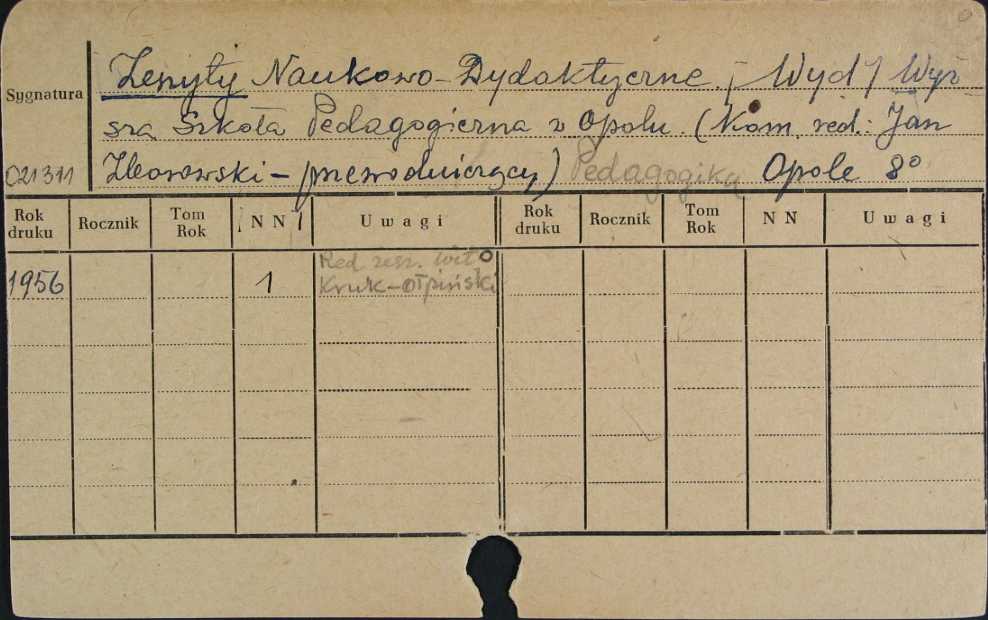 Zeszyty Naukowo-Dydaktyczne. / Wyd / Wyż
Sygnatura
sza Szkoła Pedagogiczna w Opolu. (Kom. red.: Jan
021311 Zborowski - przewodniczący) Pedagogika Opole 8°
Rok druku Rocznik Tom Rok NN Uwagi Rok druku Rocznik Tom Rok NN Uwagi
Red. zesz. Wit
1956 1 Kruk-Ołpiński